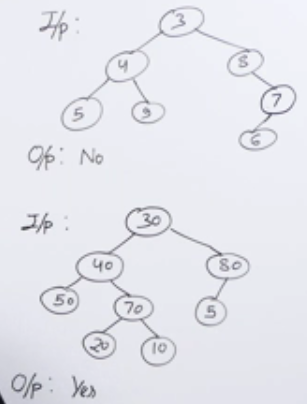 I/p :
3
4 8
5 9 7
6
O/p : No
I/p :
30
40 80
50 70 5
20 10
O/p : Yes